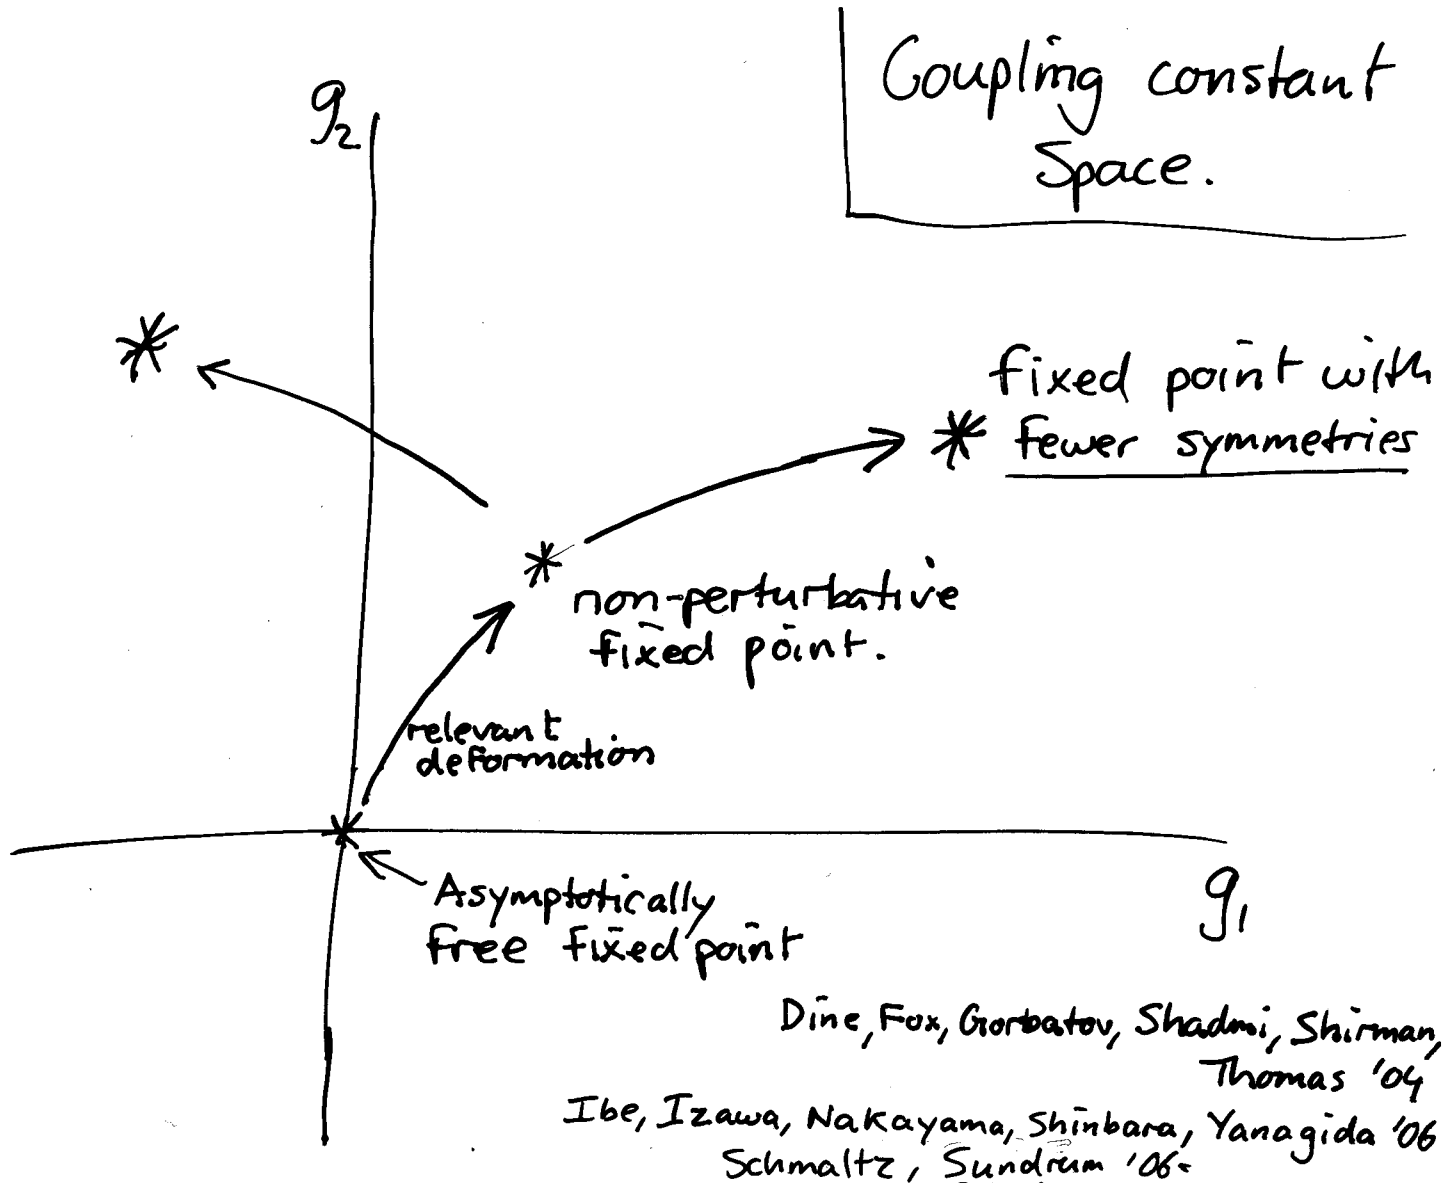 Coupling constant
Space.
g2
fixed point with
fewer symmetries
non-perturbative
fixed point.
relevant
deformation
Asymptotically
free fixed point
g1
Dine, Fox, Gorbatov, Shadmi, Shirman,
Thomas '04
Ibe, Izawa, Nakayama, Shinbara, Yanagida '06
Schmaltz, Sundrum '06.